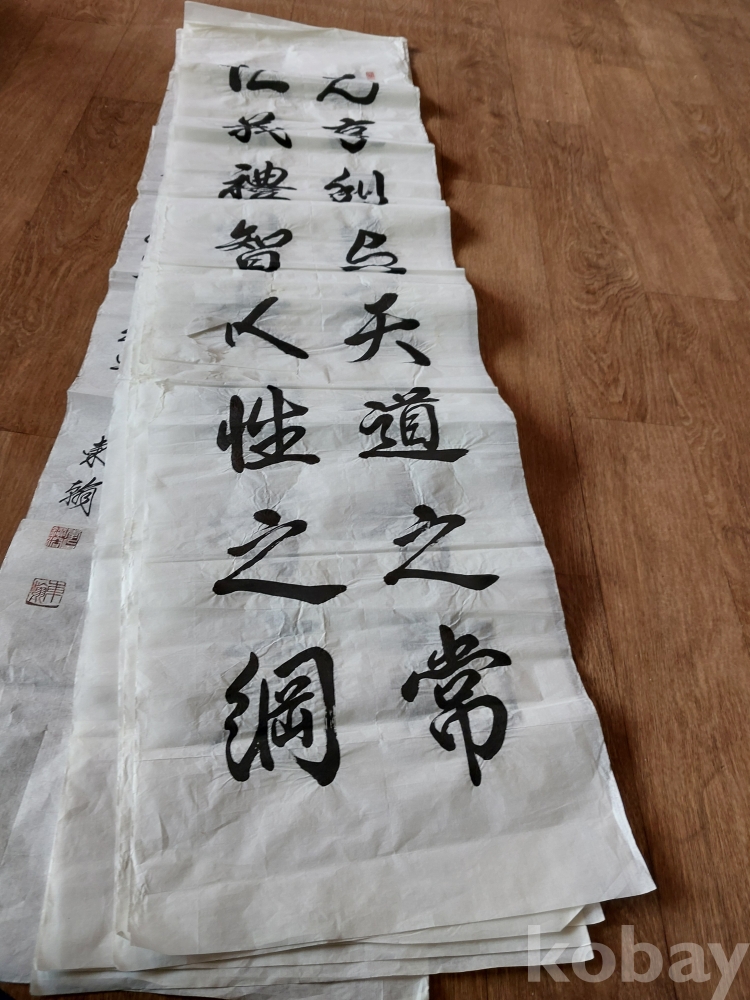 元亨利貞天道之常
仁義禮智人性之綱
東翰
kobay